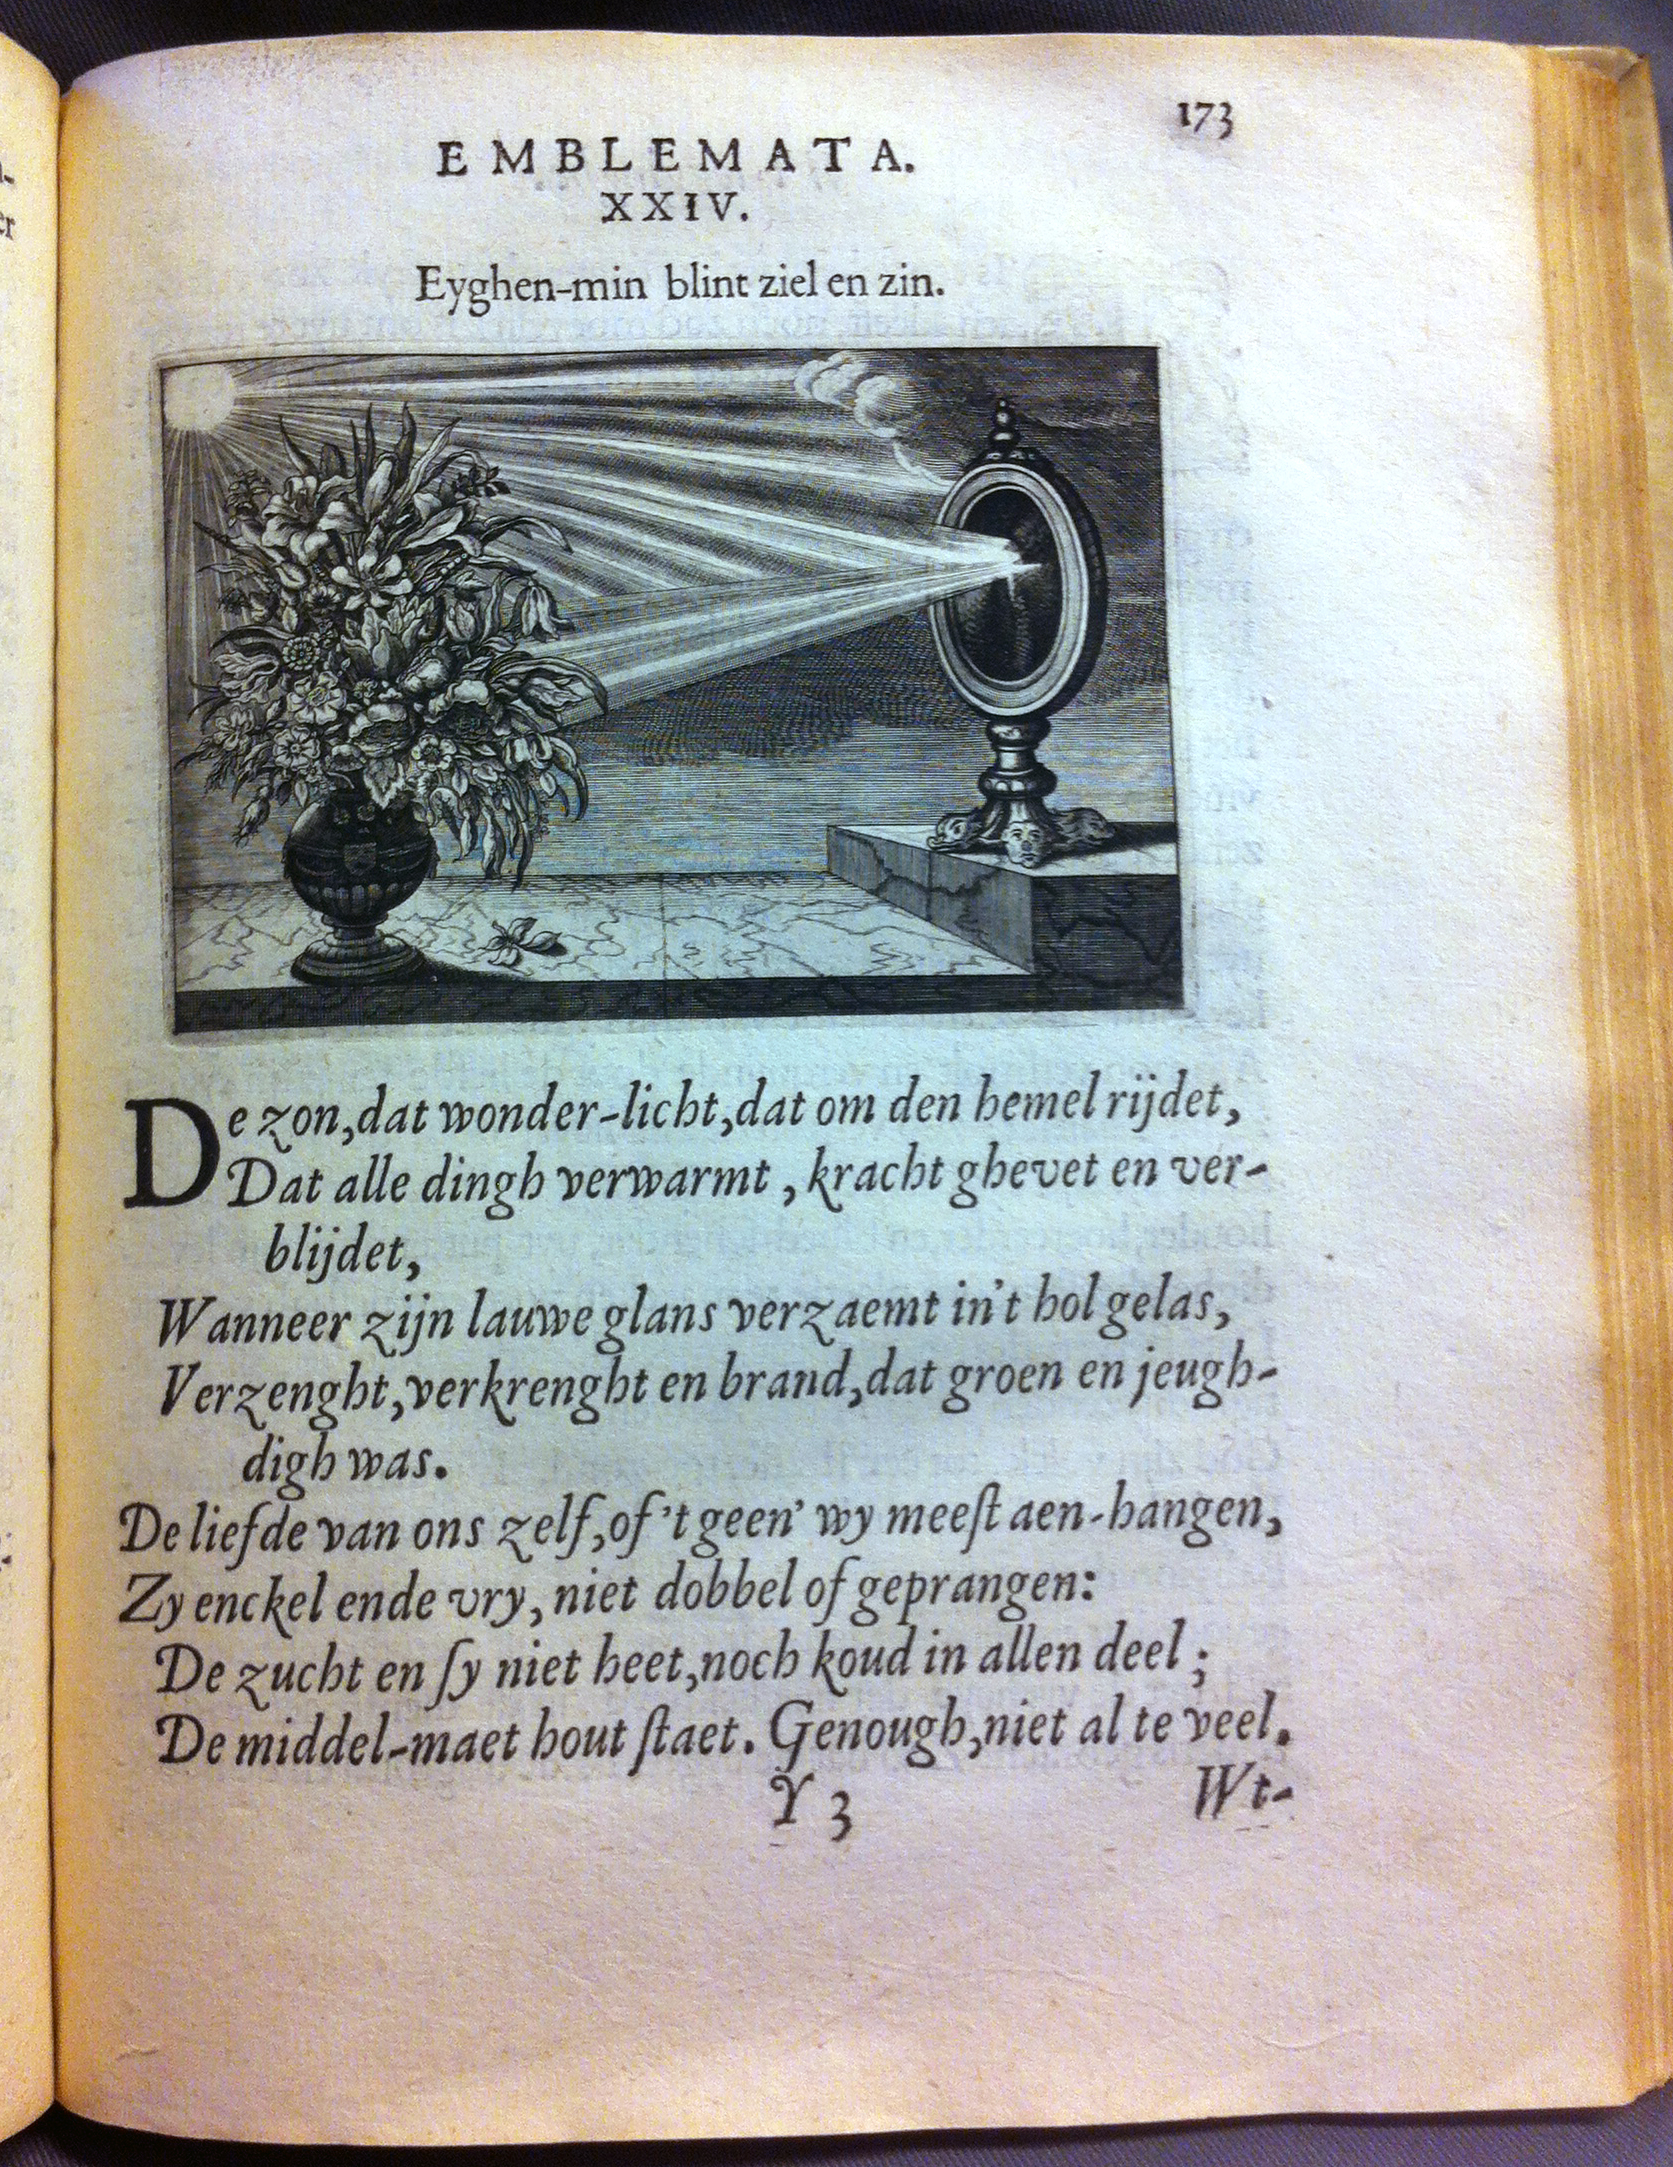 173
EMBLEMATA.
XXIV.
Eyghen-min blint ziel en zin.
De zon, dat wonder-licht, dat om den hemel rijdet,
Dat alle dingh verwarmt, kracht ghevet en ver-
blijdet,
Wanneer zijn lauwe glans verzaemt in't hol gelas,
Verzenght, verkrenght en brand, dat groen en jeugh-
digh was.
De liefde van ons zelf, of 't geen' wy meeſt aen-hangen,
Zy enckel ende vry, niet dobbel of geprangen:
De zucht en ſy niet heet, noch koud in allen deel;
De middel-maet hout ſtaet. Genough, niet al te veel.
Y 3
Wt-